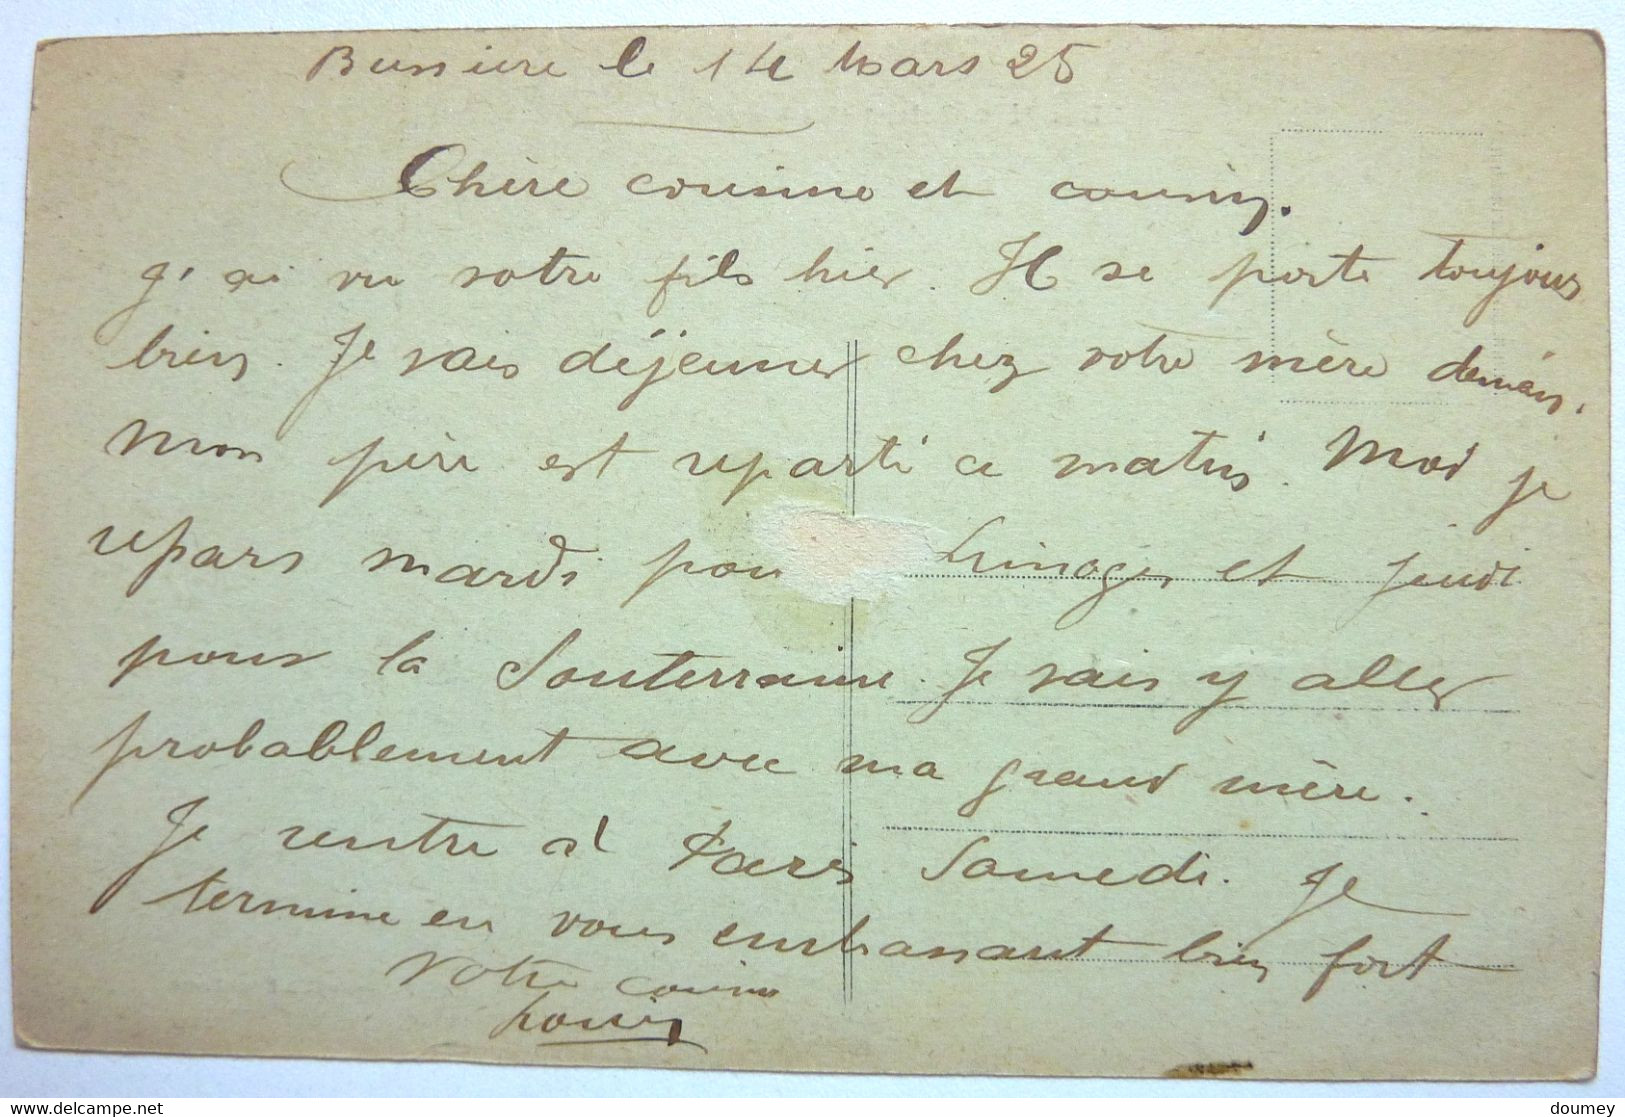 Bussiere le 14 Mars 25
Chère cousine et cousin.
j'ai vu votre fils hier. Il se porte toujours
bien. Je vais déjeuner chez votre mère demain.
Mon père est reparti ce matin. Moi je
repars mardi pou Limoges et jeudi
pour la Souterraine. Je vais y aller
probablement avec ma grand mère.
Je rentre à Paris Samedi. Je
termine en vous embrassant bien fort
Votre cousin
Louis
doumey